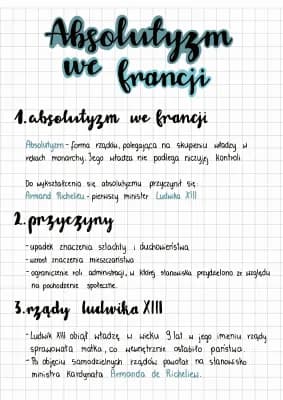 Absolutyzm
we francji
1. absolutyzm we francji
Absolutyzm - forma rządów, polegająca na skupieniu władzy w
rękach monarchy. Jego władza nie podlega niczyjej kontroli
Do wykształcenia się absolutyzmu przyczynił się:
Armand Richelieu - pierwszy minister Ludwika XIII
2. przyczyny
- upadek znaczenia szlachty i duchowieństwa
- wzrost znaczenia mieszczaństwa
- ograniczenie roli administracji, w której stanowiska przydzielono ze względu
na pochodzenie społeczne.
3. rządy ludwika XIII
- Ludwik XIII objął władzę w wieku 9 lat w jego imieniu rządy
sprawowała matka, co wewnętrznie osłabiło państwo.
- Po objęciu samodzielnych rządów powołał na stanowisko
ministra Kardynała Armanda de Richelieu.